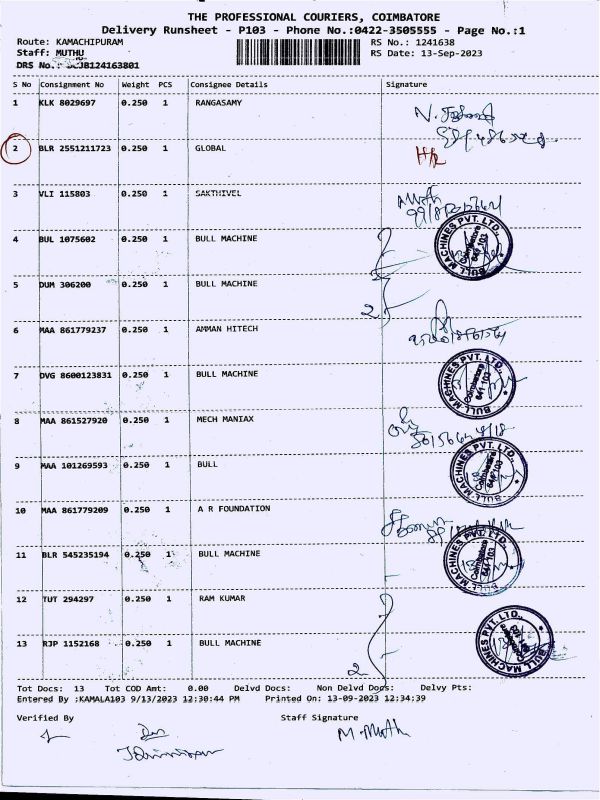 THE PROFESSIONAL COURIERS, COIMBATORE
Delivery Runsheet - P103 - Phone No.:0422-3505555 - Page No.:1
Route: KAMACHIPURAM RS No.: 1241638
Staff: MUTHU RS Date: 13-Sep-2023
DRS No.: B124163801
S No Consignment No Weight PCS Consignee Details Signature
1 KLK 8029697 0.250 1 RANGASAMY
2 BLR 2551211723 0.250 1 GLOBAL
3 VLI 115803 0.250 1 SAKTHIVEL
4 BUL 1075602 0.250 1 BULL MACHINE
BULL MACHINES PVT. LTD., Coimbatore 641 103
5 DUM 306200 0.250 1 BULL MACHINE
2
6 MAA 861779237 0.250 1 AMMAN HITECH
7 DVG 8600123831 0.250 1 BULL MACHINE
BULL MACHINES PVT. LTD., Coimbatore 641 103
8 MAA 861527920 0.250 1 MECH MANIAX
9 MAA 101269593 0.250 1 BULL
BULL MACHINES PVT. LTD., Coimbatore 641 103
10 MAA 861779209 0.250 1 A R FOUNDATION
11 BLR 545235194 0.250 1 BULL MACHINE
BULL MACHINES PVT. LTD., Coimbatore 641 103
12 TUT 294297 0.250 1 RAM KUMAR
13 RJP 1152168 0.250 1 BULL MACHINE
BULL MACHINES PVT. LTD., Coimbatore 641 103
2
Tot Docs: 13 Tot COD Amt: 0.00 Delvd Docs: Non Delvd Docs: Delvy Pts:
Entered By :KAMALA103 9/13/2023 12:30:44 PM Printed On: 13-09-2023 12:34:39
Verified By Staff Signature
M. Muth